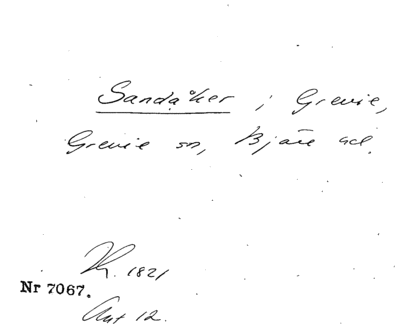 Sandåker i Grevie,
Grevie sn, Bjäre hd.
R. 1821
Nr 7067.
Akt 12.